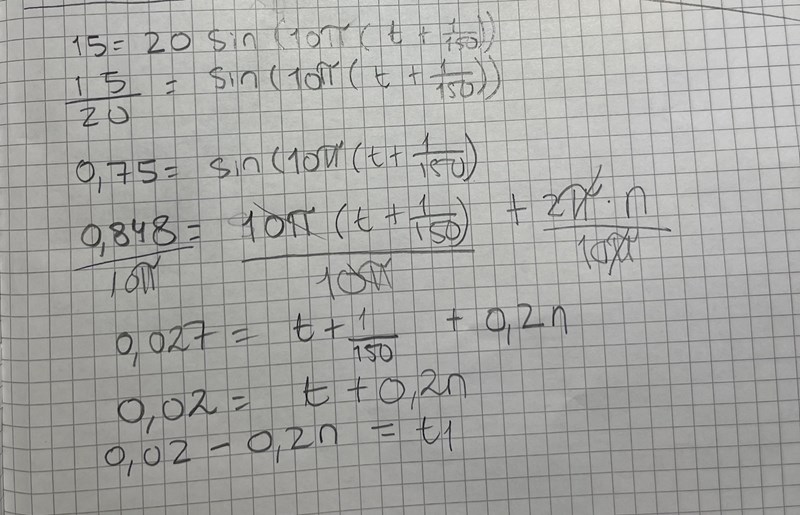 15 = 20 sin (10π ( t + 1/150))
15/20 = sin(10π ( t + 1/150))
0,75 = sin(10π (t + 1/150)
0,848/10π = 10π (t + 1/150)/10π + 2π · n/10π
0,027 = t + 1/150 + 0,2n
0,02 = t + 0,2n
0,02 - 0,2n = t1